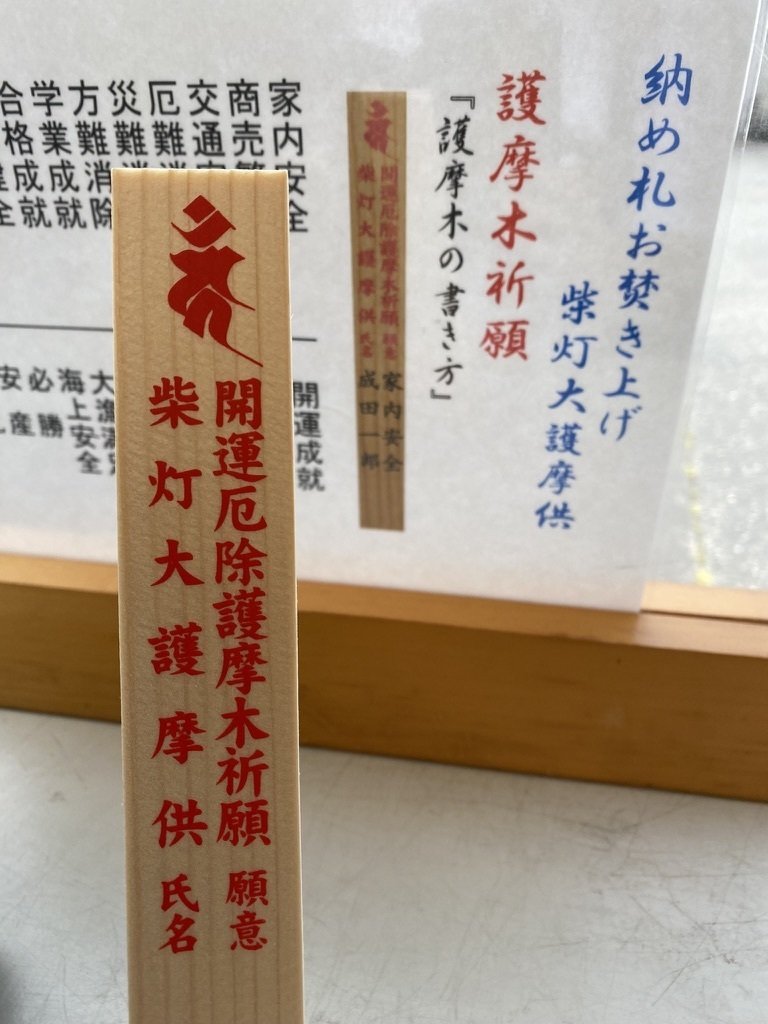 納め札お焚き上げ
柴灯大護摩供
護摩木祈願
『護摩木の書き方』
開運厄除護摩木祈願 願意 家内安全
柴灯大護摩供 氏名 成田一郎
家内安全
商売繁
交通安
厄難消
災難消
方難消除
学業成就
合格
開運成就
大漁満
海上安全
必勝
安産
開運厄除護摩木祈願 願意
柴灯大護摩供 氏名